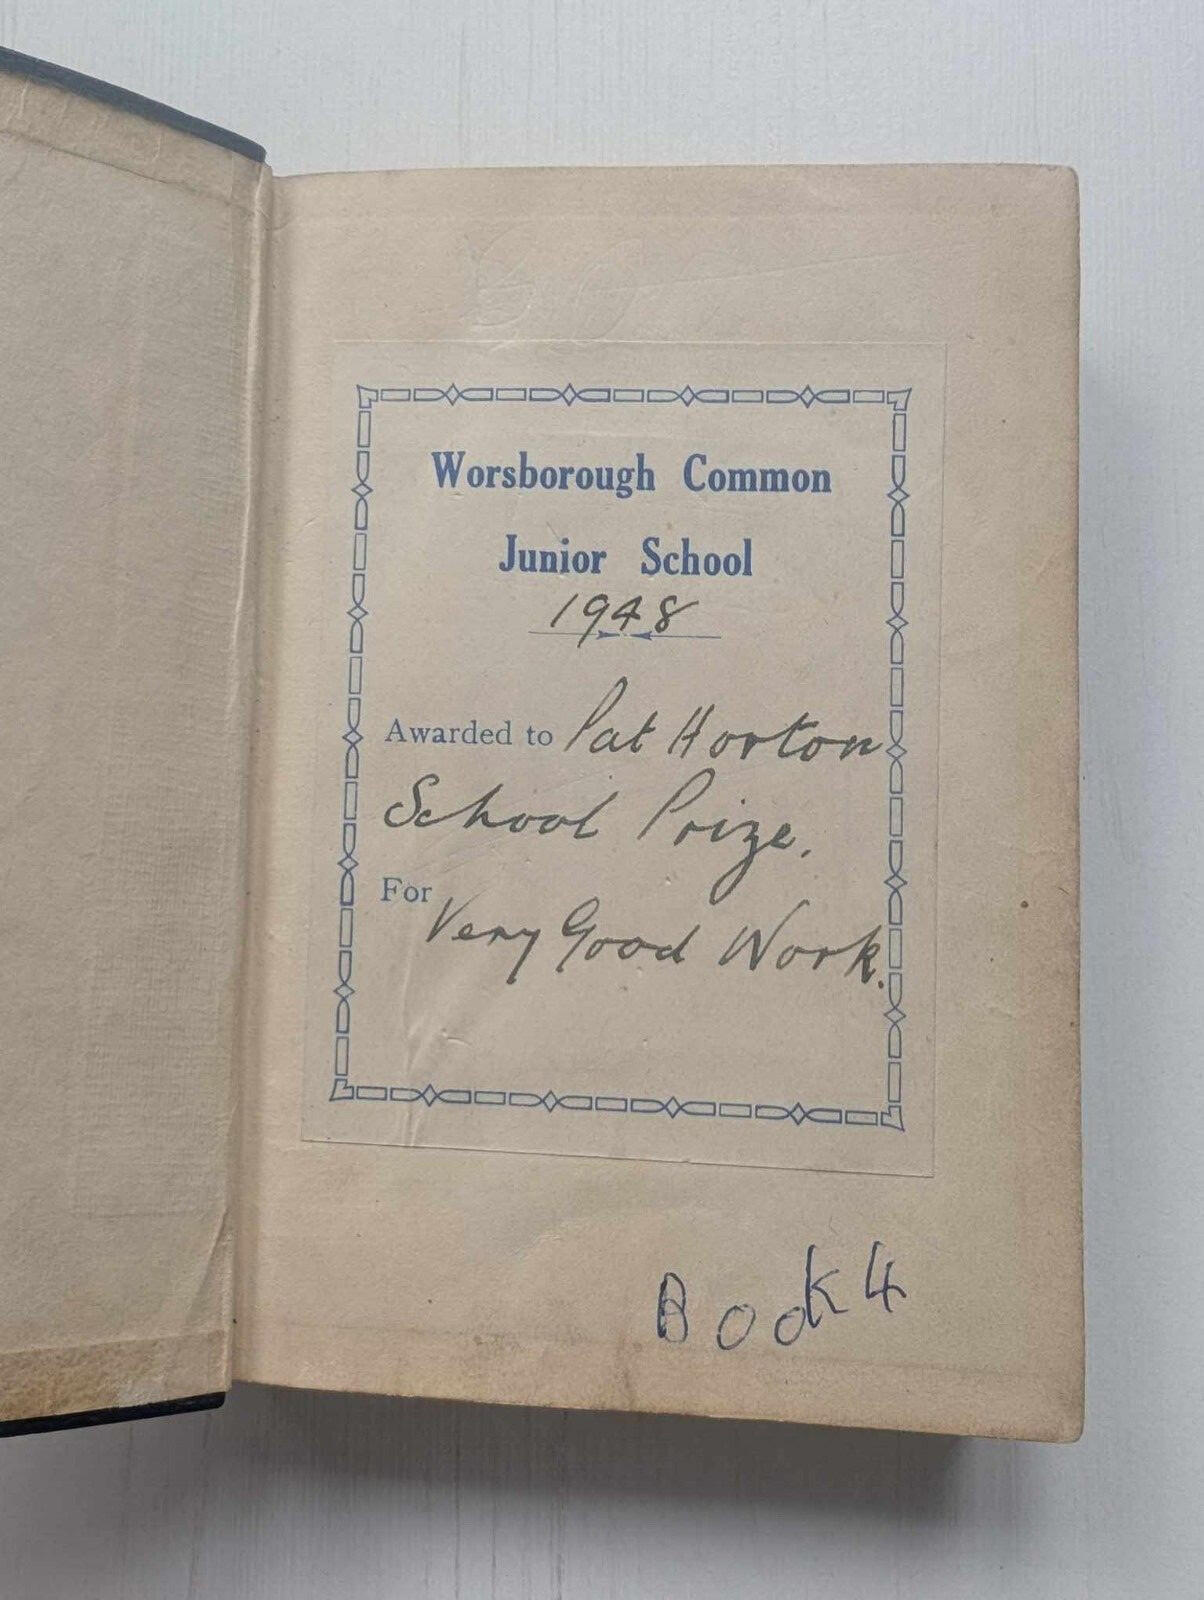 Worsborough Common
Junior School
1948
Awarded to Pat Horton
School Prize.
For
Very Good Work.
Book 4